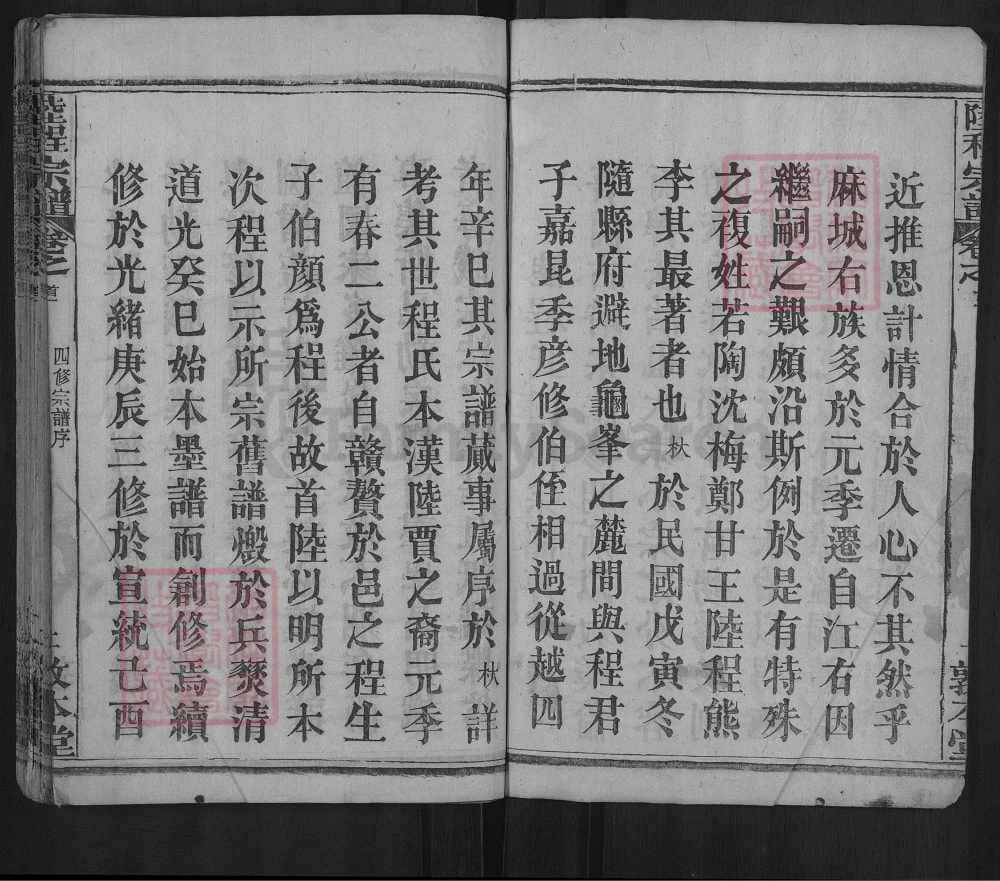 近推恩計情合於人心不其然乎
麻城右族多於元季遷自江右因
繼嗣之艱頗沿斯例於是有特殊
之複姓若陶沈梅鄭甘王陸程熊
李其最著者也秋於民國戊寅冬
隨縣府避地龜峯之麓間與程君
子嘉昆季彦修伯侄相過從越四
年辛巳其宗譜蕆事屬序於秋詳
考其世程氏本漢陸賈之裔元季
有春二公者自贛贅於邑之程生
子伯顔爲程後故首陸以明所本
次程以示所宗舊譜燬於兵燹清
道光癸巳始本墨譜而創修焉續
修於光緒庚辰三修於宣統己酉
陸程宗譜
卷之
四修宗譜序
敦本堂